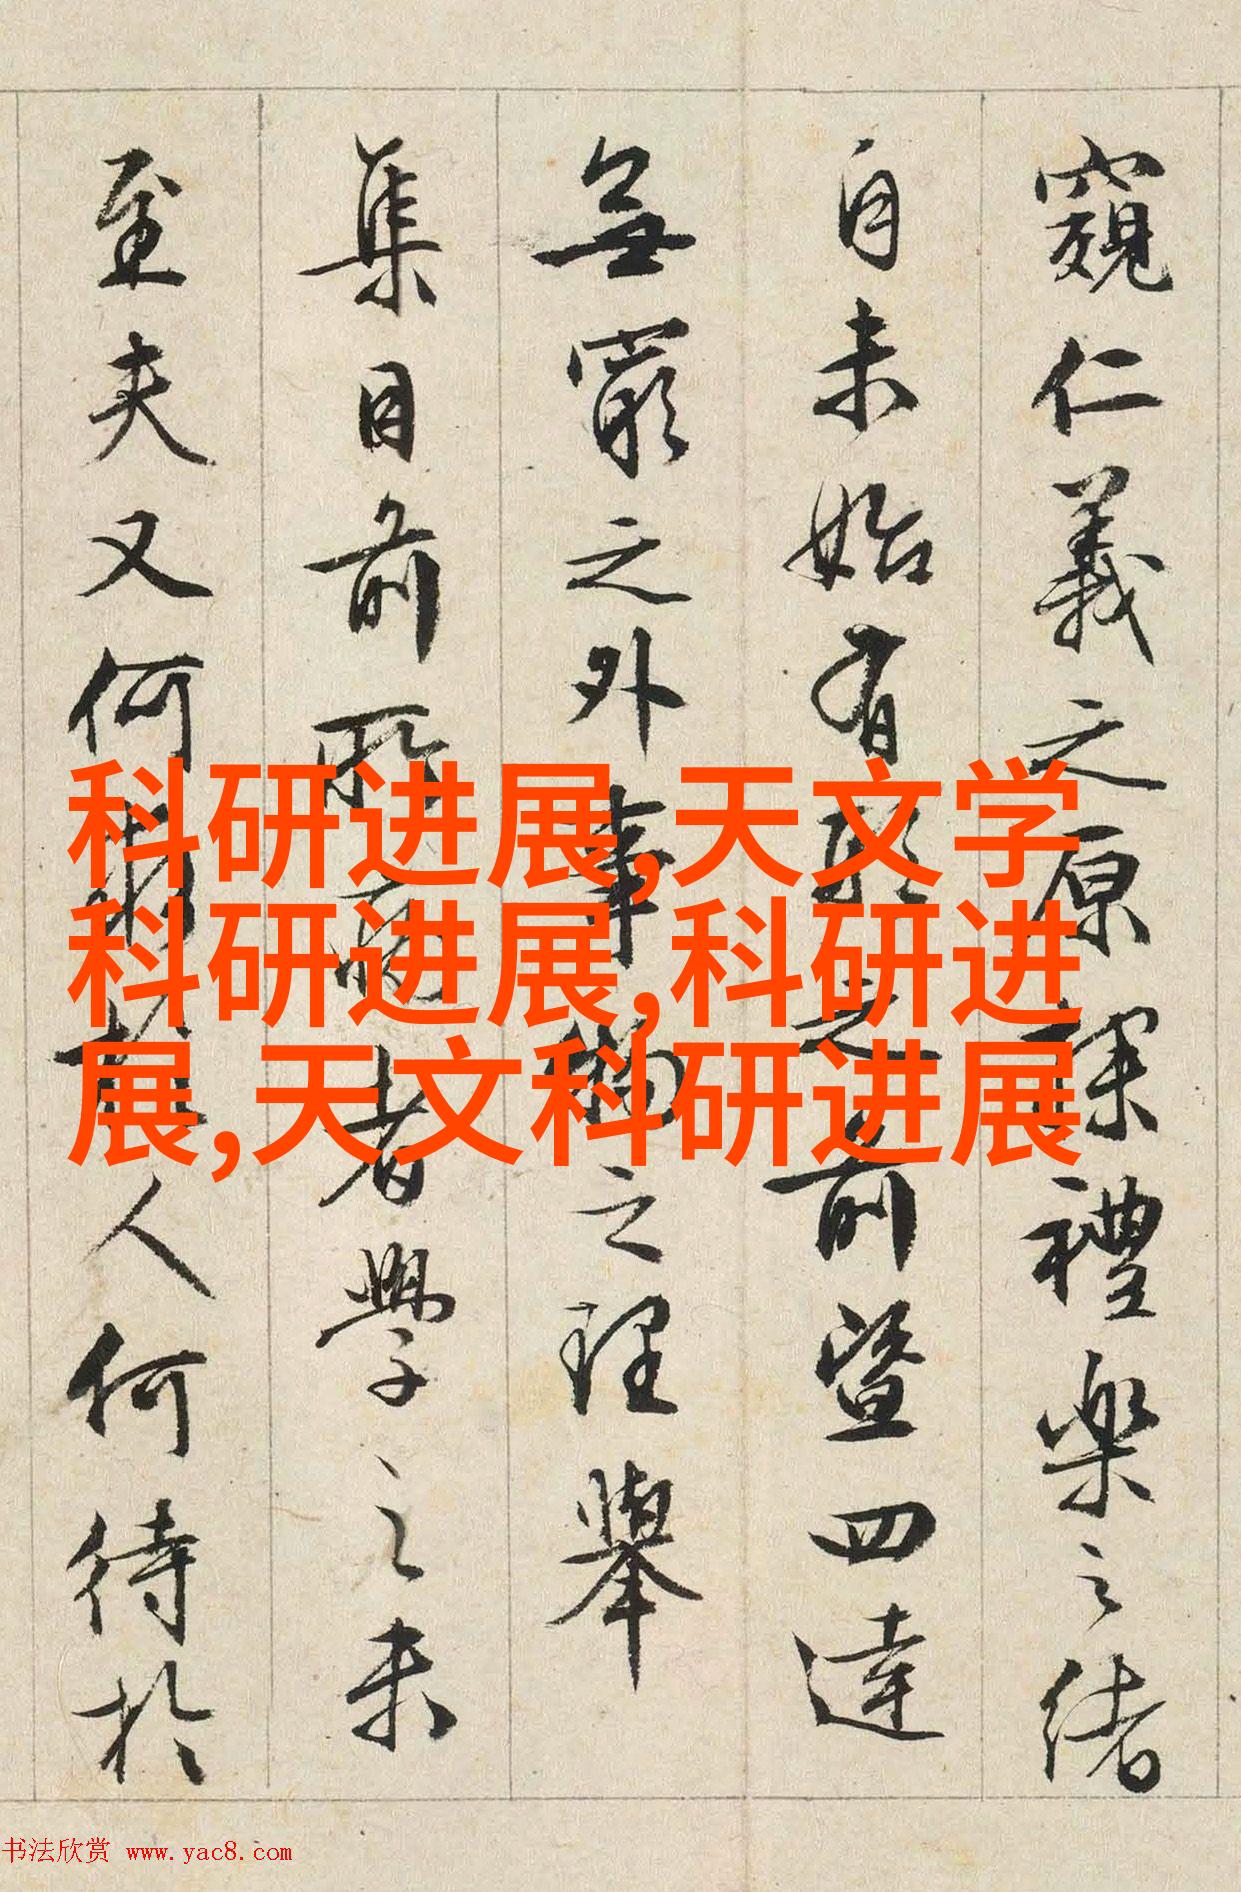 窺仁義之原探禮樂之緒
自未始有形之前暨四達
無窮之外事物之理舉
集目前所病者學之未
至夫又何人何待於
科研进展,天文学
科研进展,科研进
展,天文科研进展
书法欣赏 www.yac8.com